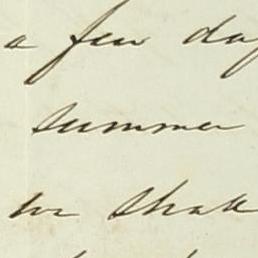 a few day
summer
we shall